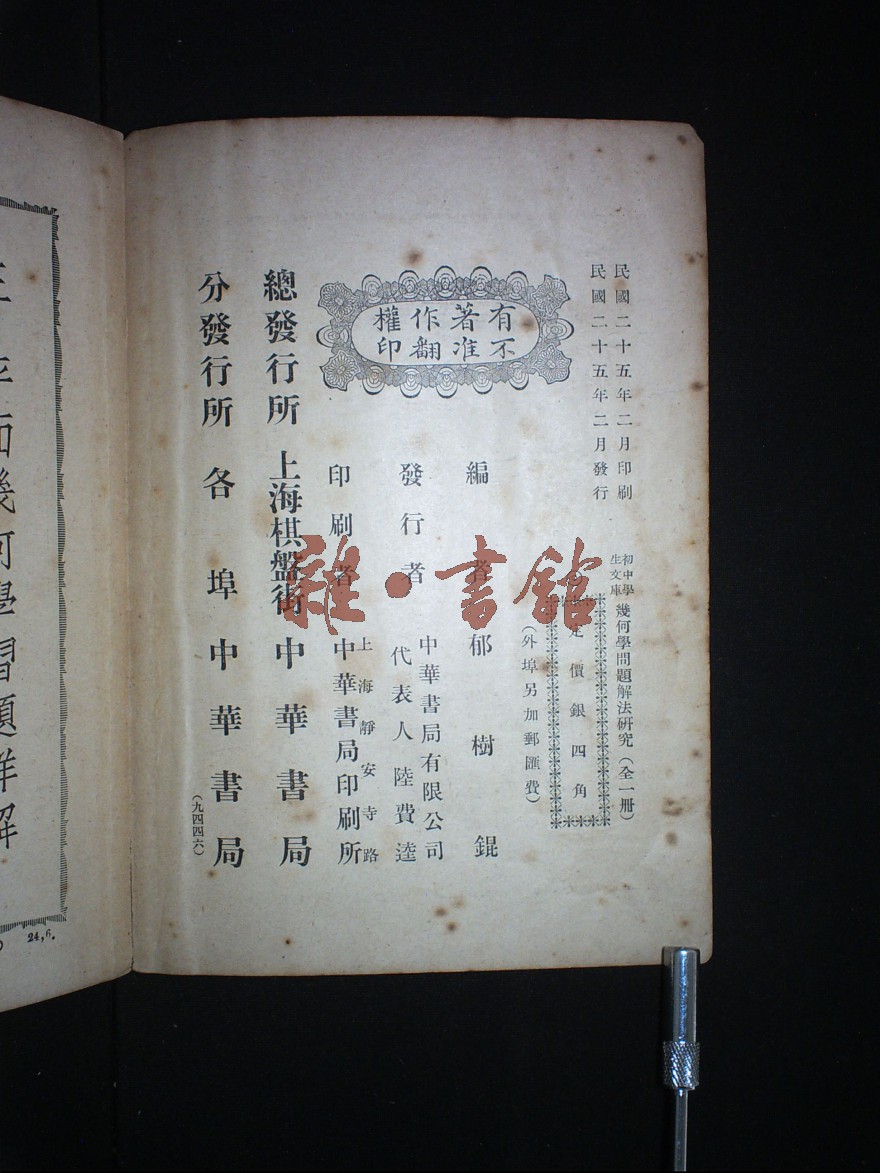 民國二十五年二月印刷
民國二十五年二月發行
初中學
生文庫
幾何學問題解法研究(全一冊)
定價銀四角
(外埠另加郵匯費)
有著作權
不准翻印
編者 郁樹錕
發行者 中華書局有限公司
代表人 陸費逵
印刷者 上海靜安寺路
中華書局印刷所
總發行所 上海棋盤街 中華書局
分發行所 各埠中華書局
(九四四六)
雜·書館
平面幾何學習題詳解
24,6.